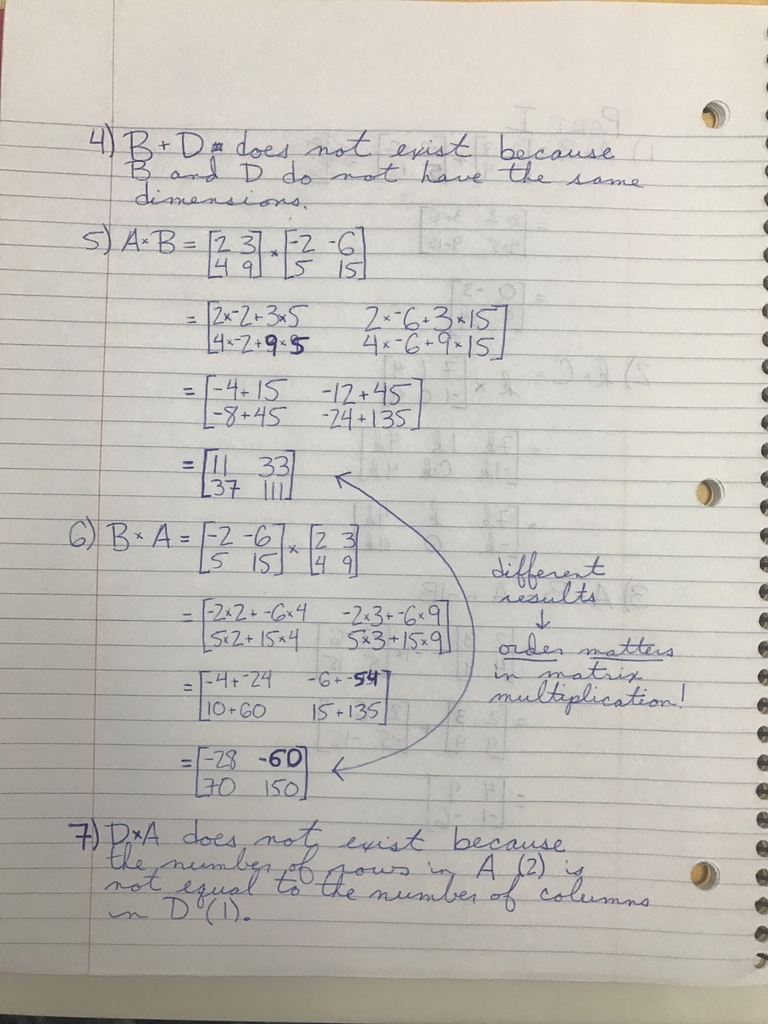 4) B + D does not exist because
B and D do not have the same
dimensions.
5) A × B = [2 3] × [-2 -6]
[4 9] [5 15]
= [2×-2+3×5 2×-6+3×15]
[4×-2+9×5 4×-6+9×15]
= [-4+15 -12+45]
[-8+45 -24+135]
= [11 33]
[37 111]
6) B × A = [-2 -6] × [2 3]
[5 15] [4 9]
= [-2×2+-6×4 -2×3+-6×9]
[5×2+15×4 5×3+15×9]
= [-4+-24 -6+-54]
[10+60 15+135]
= [-28 -60]
[70 150]
different
results
↓
order matters
in matrix
multiplication!
7) D×A does not exist because
the number of rows in A (2) is
not equal to the number of columns
in D (1).